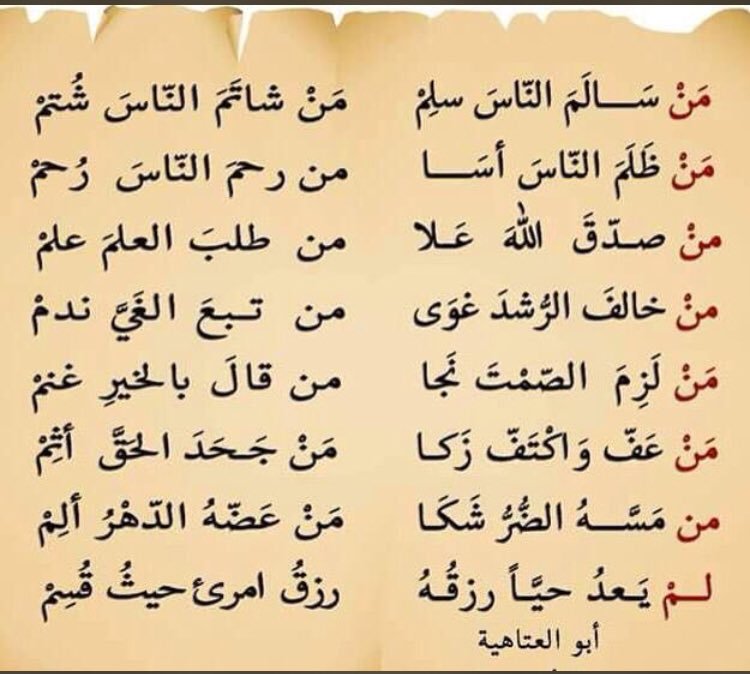 مَنْ سَـــالَمَ النّاسَ سلِمْ مَنْ شاتَمَ النّاسَ شُتمْ
مَنْ ظَلَمَ النّاسَ أسَـــا من رحمَ النّاسَ رُحمْ
منْ صـدّقَ اللهَ عَـلا من طلبَ العلمَ علمْ
منْ خالفَ الرُّشدَ غوَى من تـبعَ الغَيَّ ندمْ
مَنْ لَزِمَ الصّمْتَ نَجا من قالَ بالخيرِ غنمْ
مَنْ عَفّ وَاكْتَفّ زَكـا مَنْ جَـحَدَ الحَقَّ أثِمْ
من مَسَّـــهُ الضُّرُّ شَكَـا مَنْ عَضّهُ الدّهْرُ ألِمْ
لـمْ يَـعدُ حيَّـاً رزقُـهُ رزقُ امرئ حيثُ قُسِمْ
أبو العتاهية